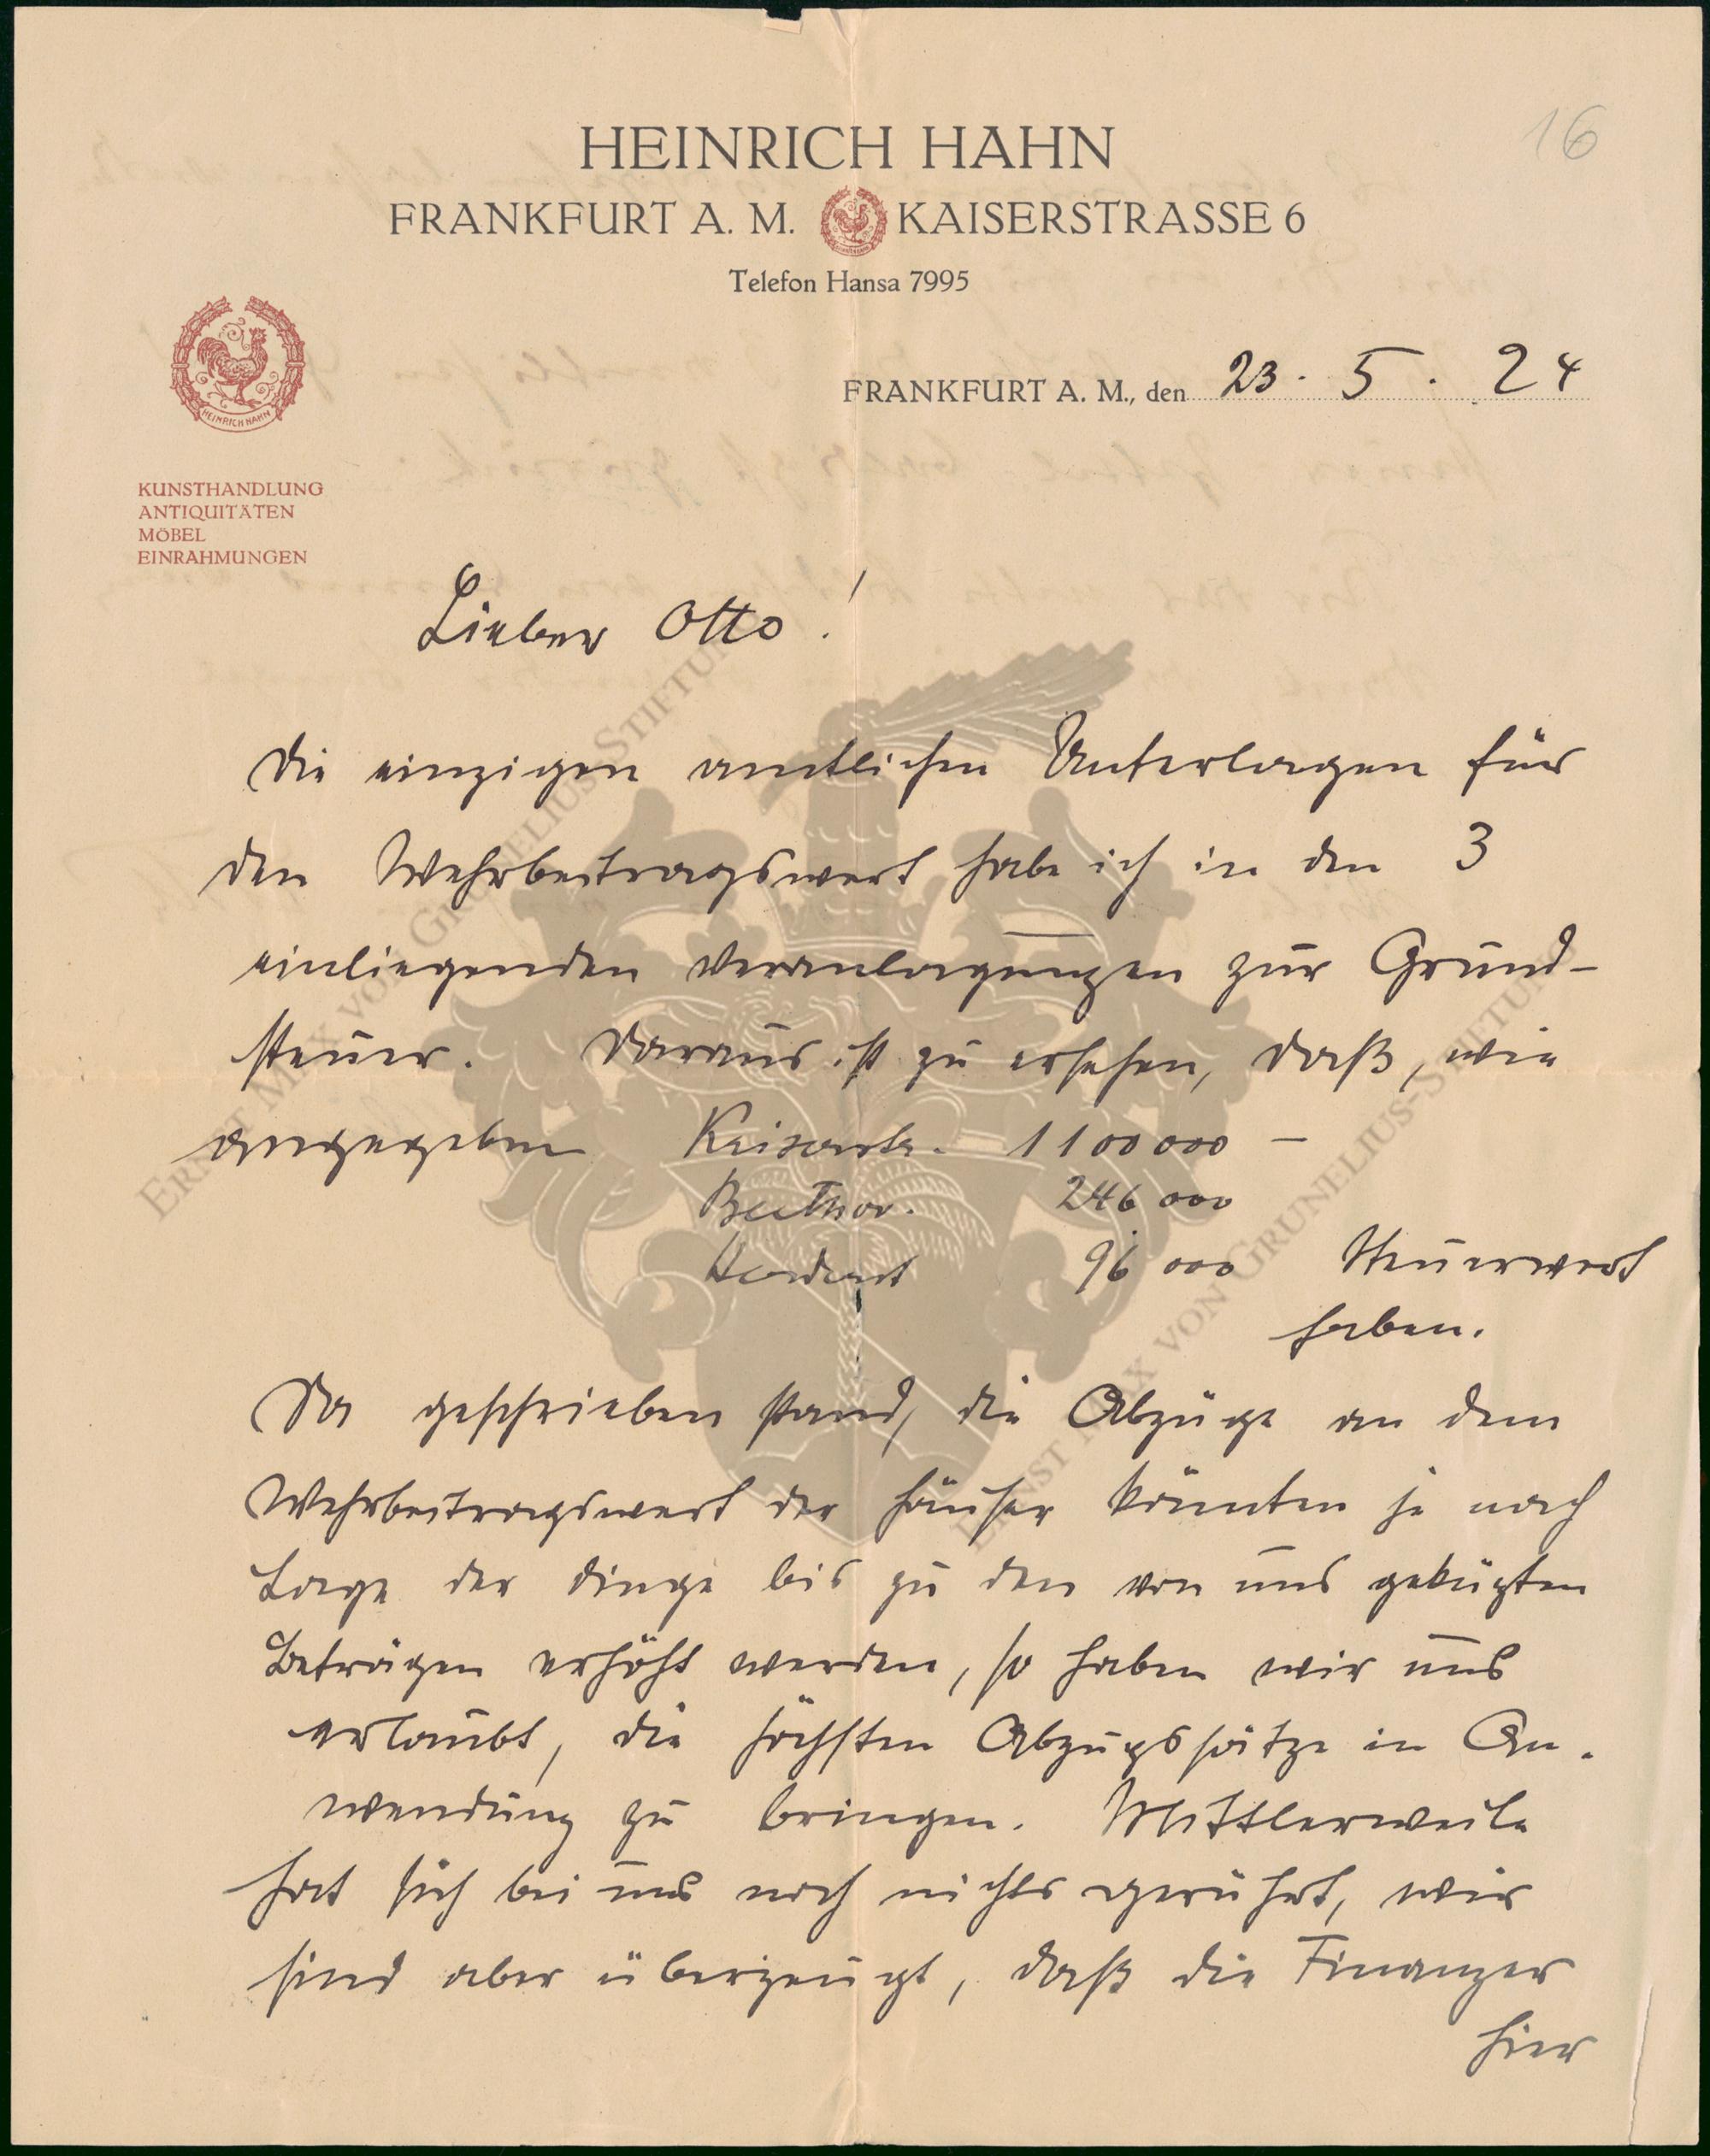 16
HEINRICH HAHN
FRANKFURT A. M. KAISERSTRASSE 6
Telefon Hansa 7995
HEINRICH HAHN
FRANKFURT A. M., den 23. 5. 24
KUNSTHANDLUNG
ANTIQUITÄTEN
MÖBEL
EINRAHMUNGEN
Lieber Otto!
Die einzigen amtlichen Unterlagen für
den Wehrbeitragswert habe ich in den 3
einliegenden Veranlagungen zur Grund-
steuer. Daraus ist zu ersehen, daß, wie
angegeben Kaiserstr. 1100000 –
Beethov. 246 000
96 000 Steuerwert
haben.
Da geschrieben stand, die Abzüge an dem
Wehrbeitragswert der Häuser könnten je nach
Lage der Dinge bis zu den von uns
Beträgen erhöht werden, so haben wir uns
erlaubt, die höchsten Abzugssätze in An-
wendung zu bringen. Mittlerweile
hat sich bei uns noch nichts gerührt, wir
sind aber überzeugt, daß die Finanzer
hier
ERNST MAX VON GRUNELIUS-STIFTUNG
ERNST MAX VON GRUNELIUS-STIFTUNG